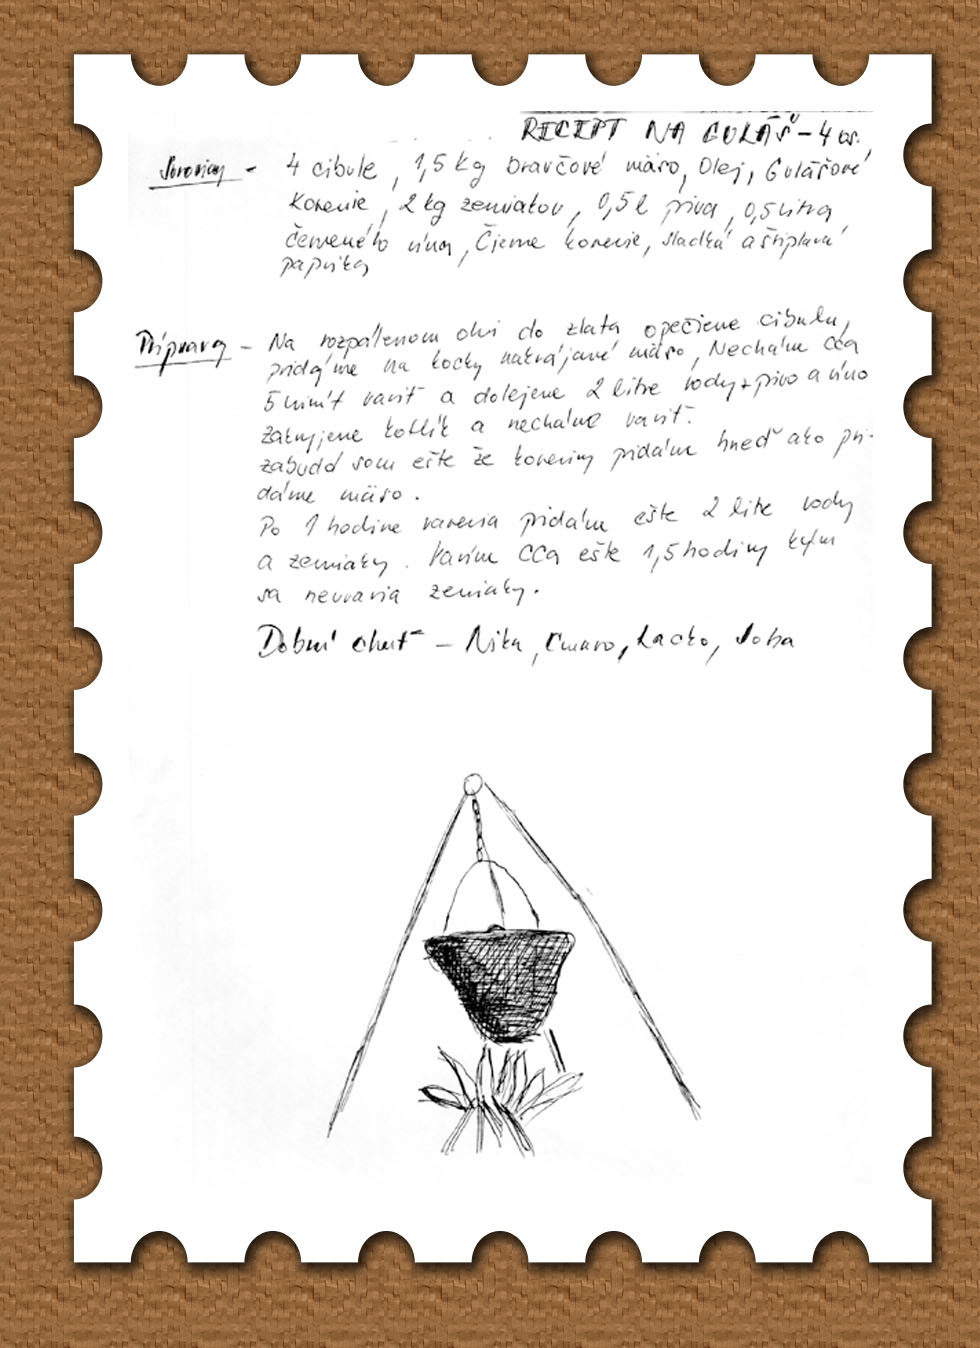 RECEPT NA GULÁŠ – 4 os.
Suroviny – 4 cibule, 1,5 kg bravčové mäso, Olej, Gulášové
korenie, 2 kg zemiakov, 0,5 l piva, 0,5 litra
červeného vína, Čierne korenie, sladká a štiplavá
paprika
Príprava – Na rozpálenom oleji do zlata opečieme cibulu,
pridáme na kocky nakrájané mäso, Nechám cca
5 minút variť a dolejeme 2 litre vody + pivo a víno
zakryjeme kotlík a necháme variť.
zabudol som ešte že koreniny pridám hneď ako pri-
dáme mäso.
Po 1 hodine varenia pridám ešte 2 litre vody
a zemiaky. Varím cca ešte 1,5 hodiny kým
sa neuvaria zemiaky.
Dobrú chuť – Nika, Lacko,